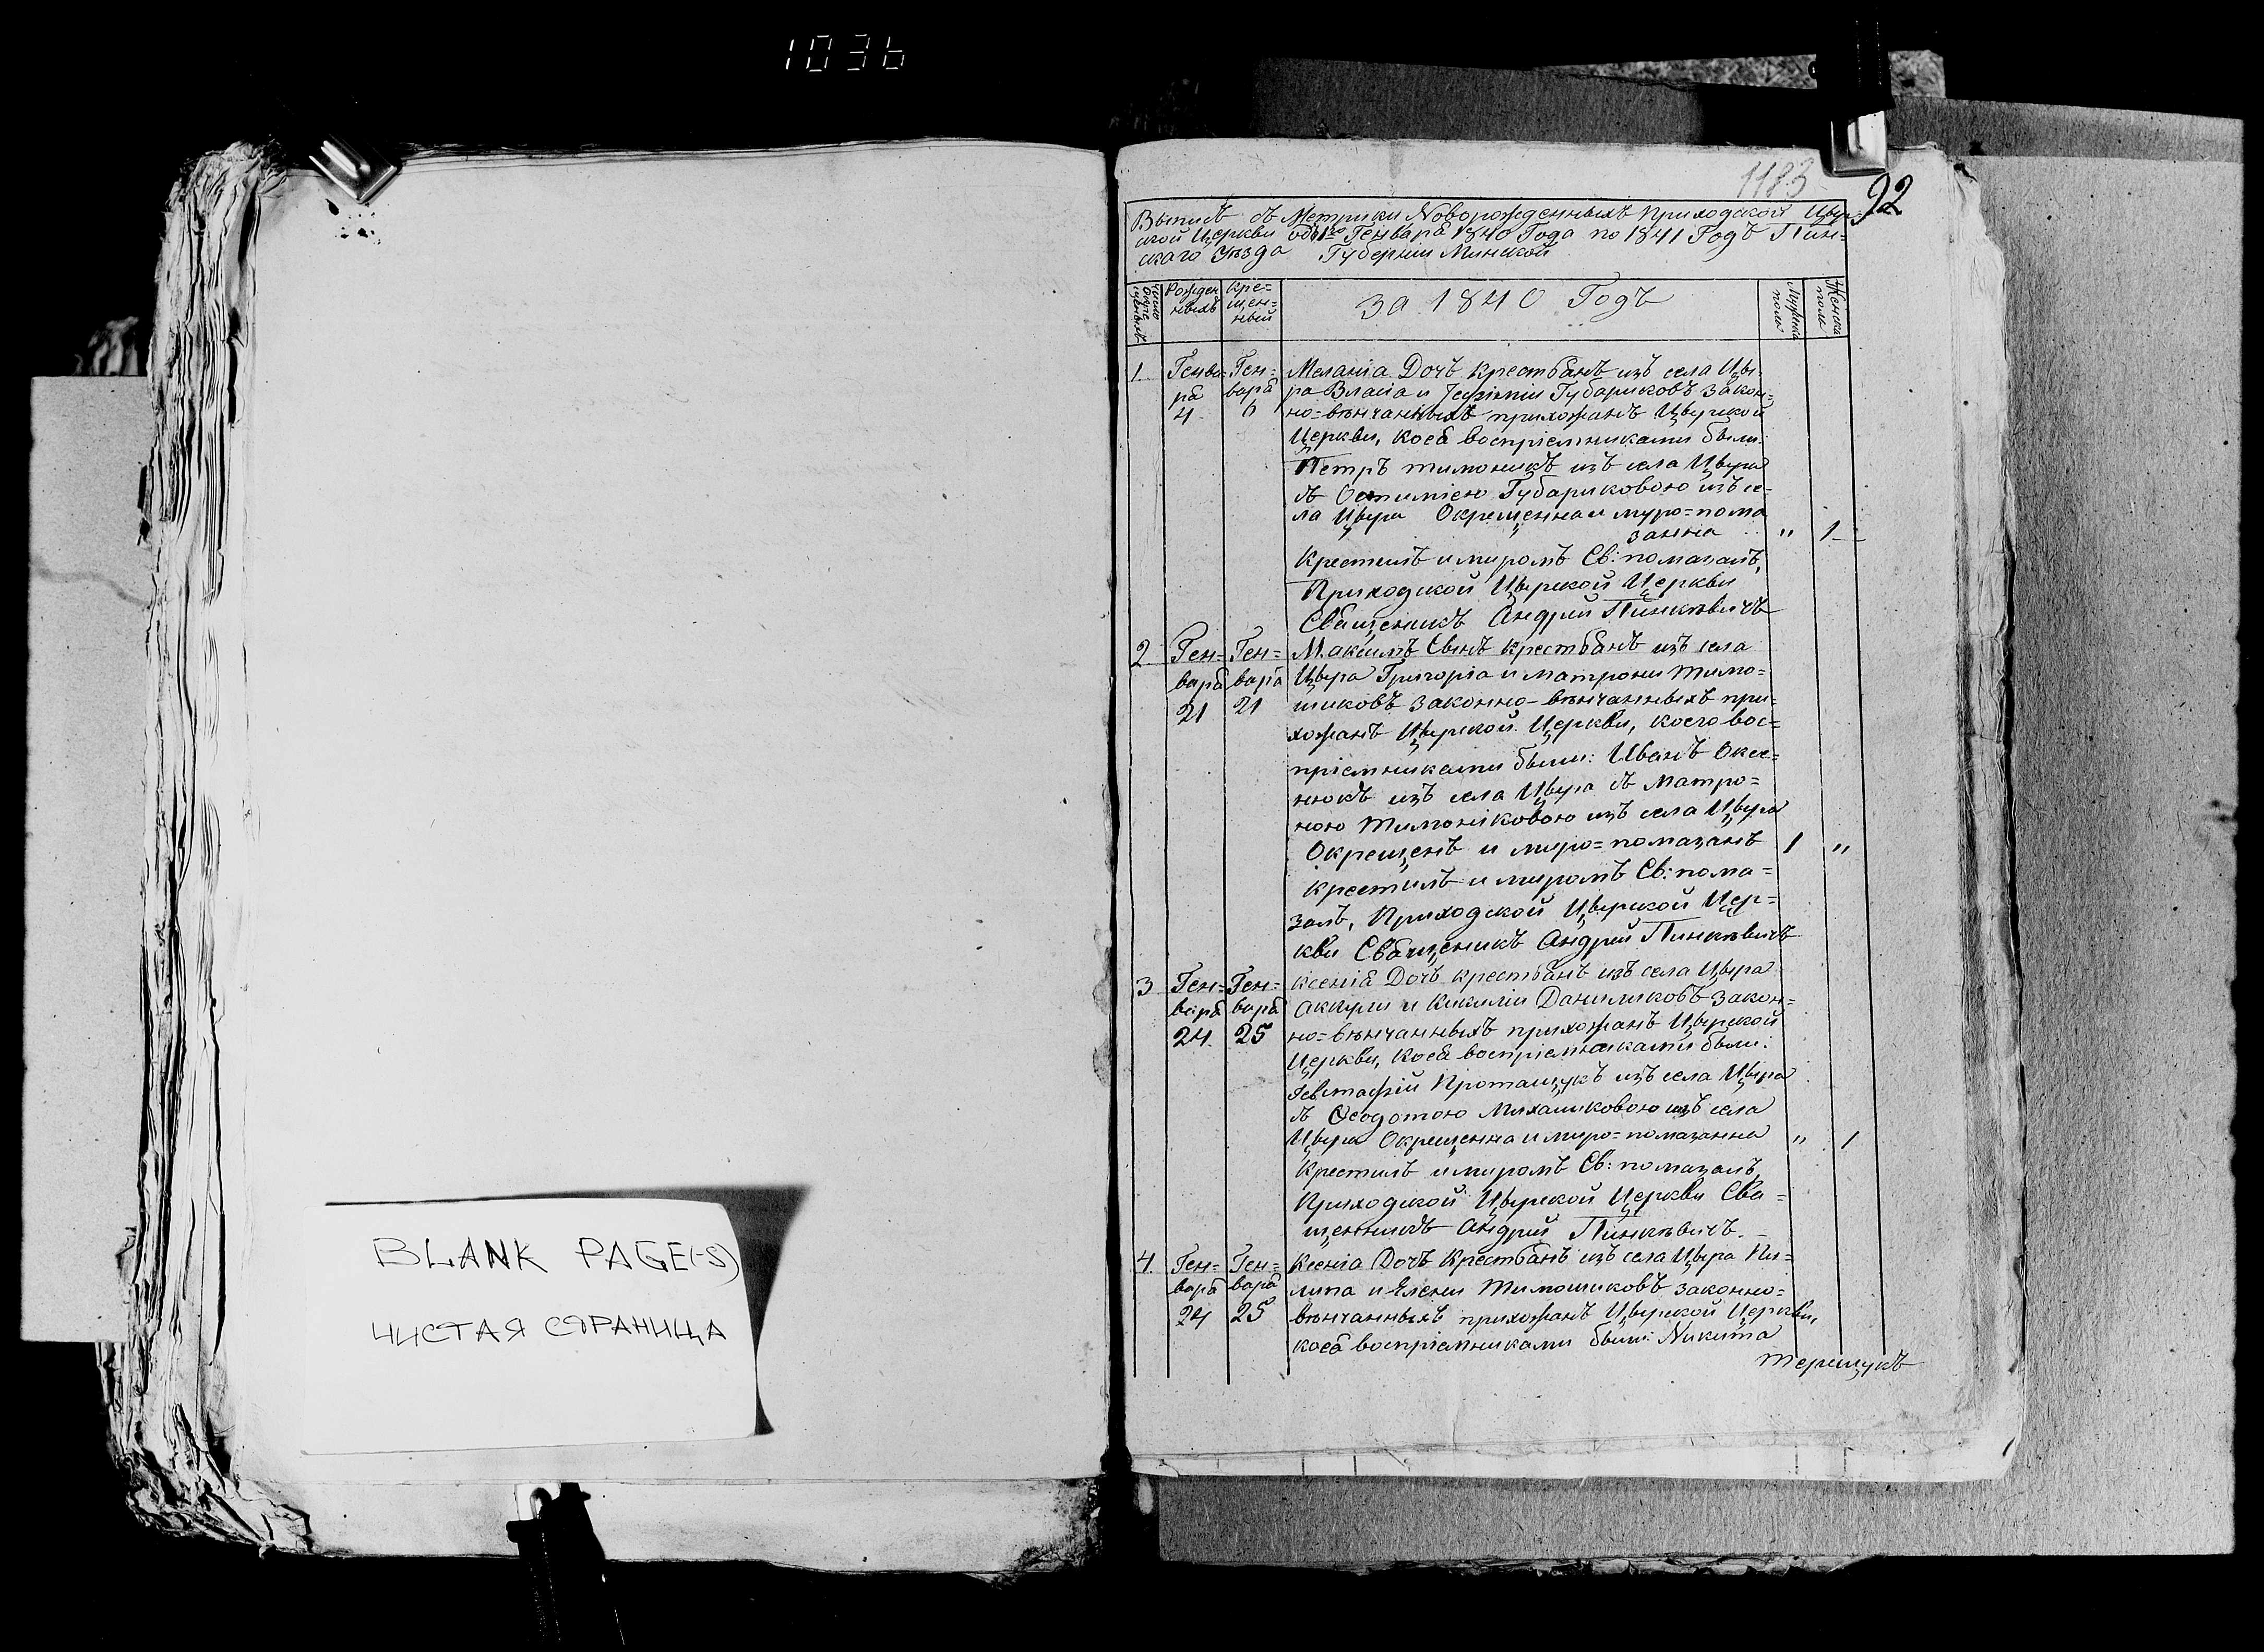 1036
BLANK PAGE(-S)
ЧИСТАЯ СТРАНИЦА
1183
92
Выписъ съ Метрики Новорожденныхъ Приходской Цвыр-
ской Церкви одъ 1го Генваря 1840 Года по 1841 Годъ Пин-
скаго Уѣзда Губерніи Минской
число Окрещенныхъ
Рожден
ныхъ
Кре=
щен=
ный
За 1840 Годъ
Мужска полы
Женска полы
1. Генва= Ген= Меланія Дочъ крестьянъ изъ села Цвы-
ря варя ра Власа и Губариковъ закон=
4 6 но=вѣнчанныхъ прихожанъ Цвырской
Церкви, коея воспріемниками были:
Петръ тимошикъ изъ села Цвыра
съ Губариковою изъ се-
ла Цвыра Окрещенна и муро=пома
занна " 1
Крестилъ и миромъ Св: помазалъ,
Приходской Цвырской Церкви
Священикъ Андрей Пинкѣвичъ
2 Ген= Ген= Максимъ Сынъ крестьянъ изъ села
варя варя Цвыра Григорія и матроны тимо=
21 21 шиковъ законно-вѣнчанныхъ при-
хожанъ Цвырской Церкви, коего вос=
пріемниками были: Иванъ Оксе=
нюкъ изъ села Цвыра съ Матро=
ною тимошиковою изъ села Цвыра
Окрещенъ и миро=помазанъ 1 "
крестилъ и миромъ Св: пома=
залъ, Приходской Цвырской Цер=
кви Священикъ Андрей Пинкѣвичъ
3 Ген= Ген= Ксенія Дочъ крестьянъ изъ села Цвыра
варя варя и Кикиліи Даниликовъ закон=
24. 25 но=вѣнчанныхъ прихожанъ Цвырской
Церкви, коея воспріемниками были:
Іевстафій Протащукъ изъ села Цвыра
съ Ѳеодотою Михаликовою изъ села
Цвыра Окрещенна и миро=помазанна " 1
Крестилъ и миромъ Св: помазалъ,
Приходской Цвырской Церкви Свя=
щенникъ Андрей Пинкѣвичъ.
4. Ген= Ген= Ксенія Дочъ Крестьянъ изъ села Цвыра Пи=
варя варя липа и Елены Тимошиковъ законно=
24 25 вѣнчанныхъ прихожанъ Цвырской Церкви,
коея воспріемниками были: Никита
терещукъ